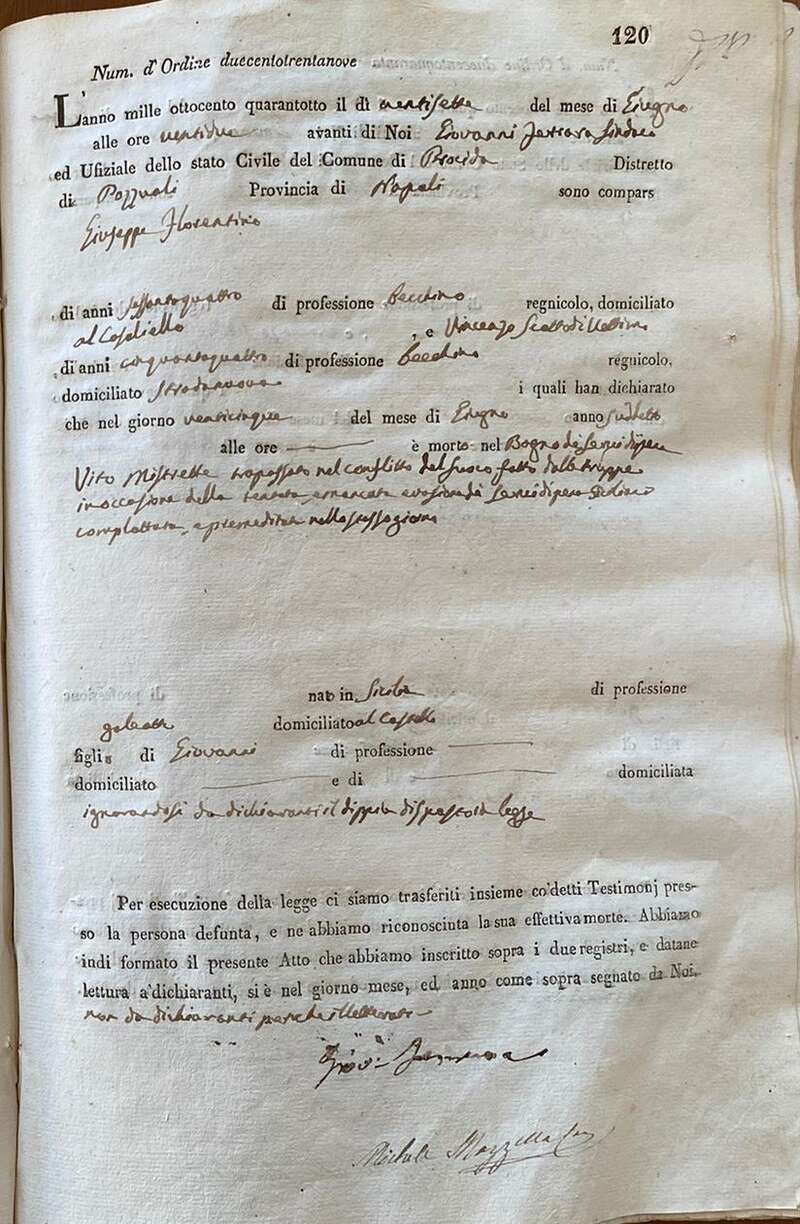 120
Num. d'Ordine duecentotrentanove
L'anno mille ottocento quarantotto il dì ventisette del mese di Giugno
alle ore ventidue avanti di Noi Giovanni Ferrara Sindaco
ed Ufiziale dello stato Civile del Comune di Procida Distretto
di Pozzuoli Provincia di Napoli sono compars
Giuseppe Florentino
di anni sessantaquattro di professione becchino regnicolo, domiciliato
al Casaliello , e Vincenzo Scotto di
di anni cinquantaquattro di professione becchino regnicolo,
domiciliato Stradanuova i quali han dichiarato
che nel giorno venticinque del mese di Giugno anno suddetto
alle ore è morto nel Bagno de' servi di pena
Vito Mistretta trapassato nel conflitto del fuoco fatto dalle truppe
in occasione della tentata evasione di servi di pena
complottata e premeditata nello stesso giorno
nato in Sicilia di professione
galeotto domiciliato al Castello
figlio di Giovanni di professione
domiciliato e di domiciliata
ignorandosi da dichiaranti il dippiù disposto da legge
Per esecuzione della legge ci siamo trasferiti insieme co'detti Testimonj pres-
so la persona defunta, e ne abbiamo riconosciuta la sua effettiva morte. Abbiamo
indi formato il presente Atto che abbiamo inscritto sopra i due registri, e datane
lettura a'dichiaranti, si è nel giorno mese, ed anno come sopra segnato da Noi,
non da dichiaranti perché illetterati
Giov: Ferrara
Michele Mazzella